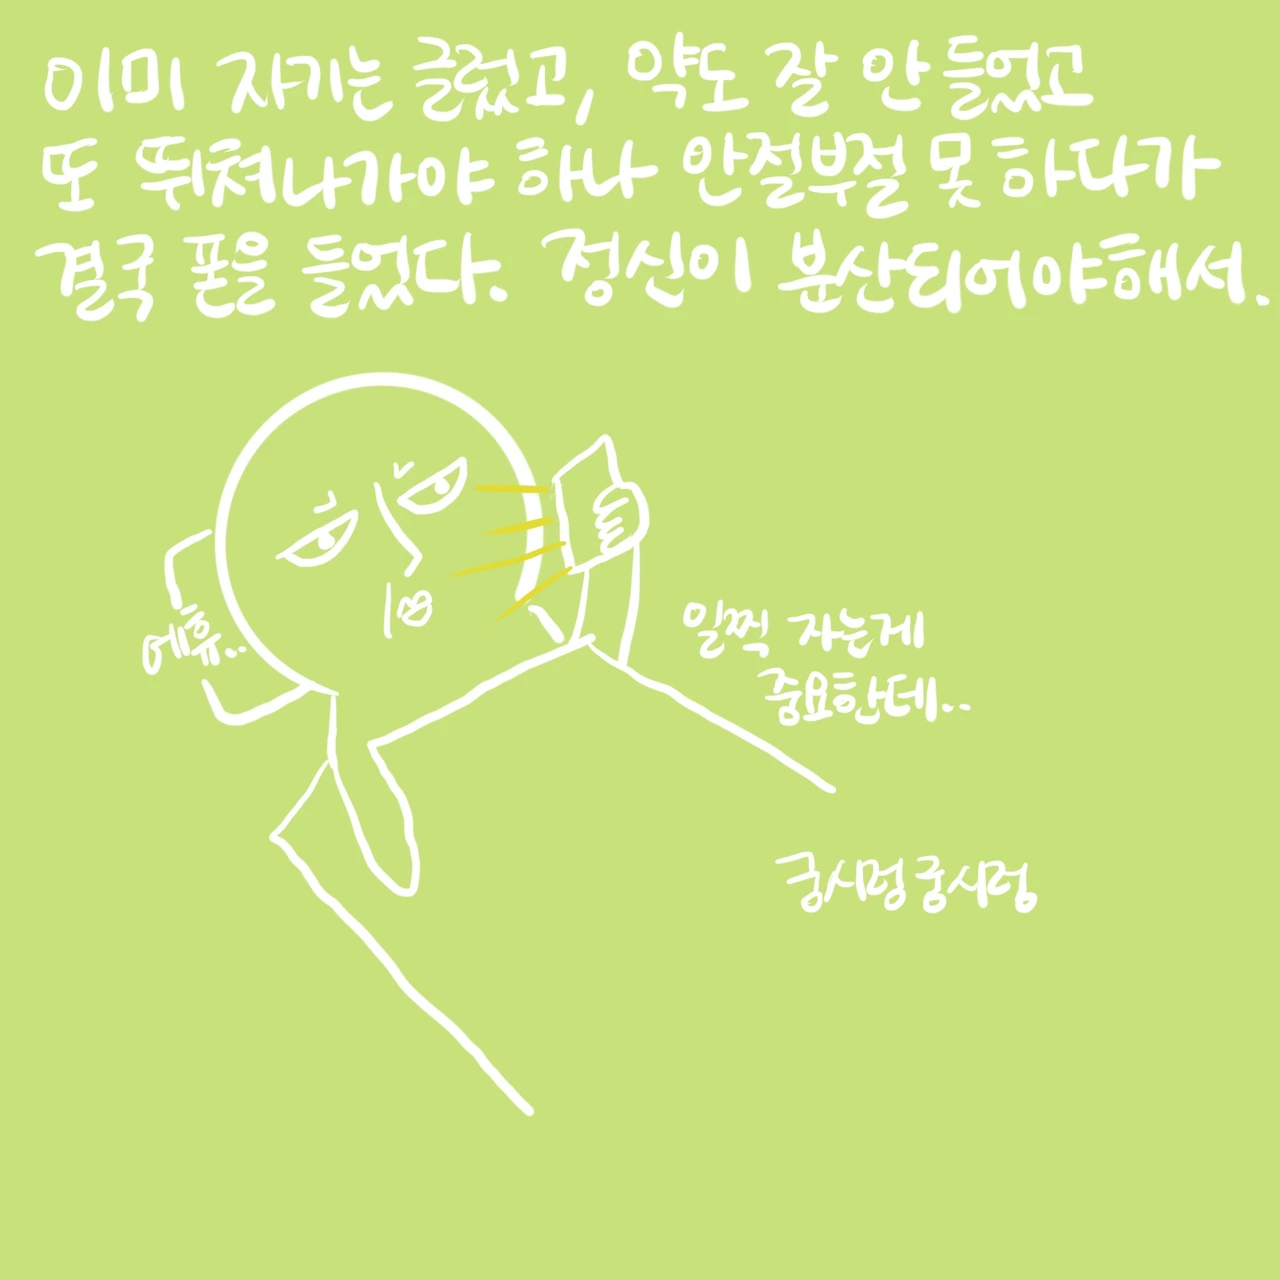 이미 자기는 글렀고, 약도 잘 안 들었고
또 뛰쳐나가야 하나 안절부절 못 하다가
결국 폰을 들었다. 정신이 분산되어야해서.
에휴..
일찍 자는게
중요한데..
궁시렁 궁시렁